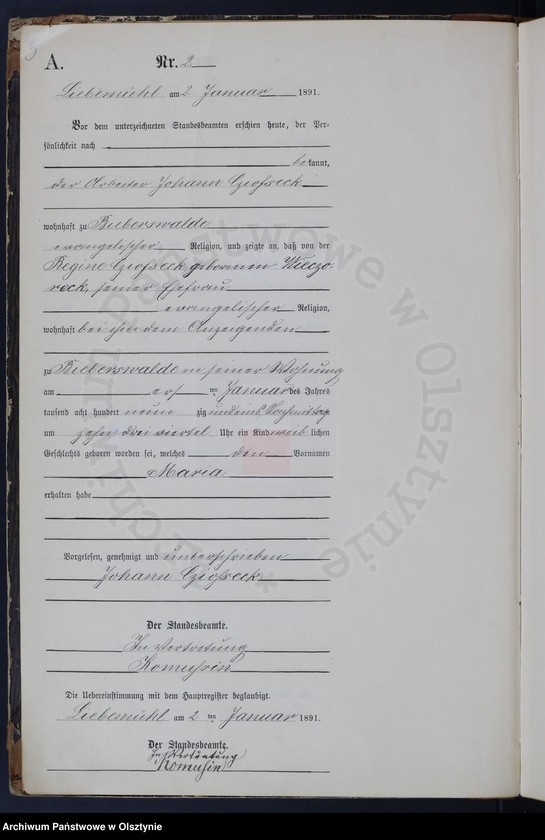 A.
Nr. 2
Liebemühl am 2 Januar 1891.
Vor dem unterzeichneten Standesbeamten erschien heute, der Per-
sönlichkeit nach
bekannt,
der Arbeiter Johann
wohnhaft zu Bieberswalde
evangelischer Religion, und zeigte an, daß von der
Regine gebornen Wieczo-
reck, seiner Ehefrau
evangelischer Religion,
wohnhaft bei ihm dem Anzeigenden
zu Bieberswalde in seiner Wohnung
am ten Januar des Jahres
tausend acht hundert neunzig und eins Nachmittag
um zehn drei viertel Uhr ein Kind weiblichen
Geschlechts geboren worden sei, welches den Vornamen
Maria
erhalten habe
Vorgelesen, genehmigt und unterschrieben
Johann
Der Standesbeamte.
In Vertretung
Komuhsin
Die Uebereinstimmung mit dem Hauptregister beglaubigt.
Liebemühl am 2 ten Januar 1891.
Der Standesbeamte.
In Vertretung
Komuhsin
Archiwum Państwowe w Olsztynie
Archiwum Państwowe w Olsztynie